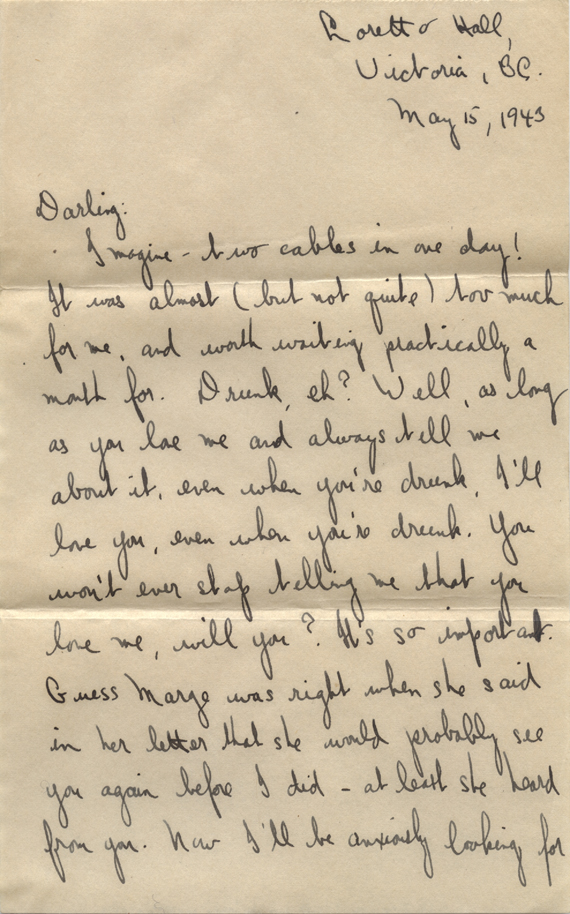 Loretto Hall,
Victoria, BC.
May 15, 1943
Darling:
Imagine - two cables in one day!
It was almost (but not quite) too much
for me, and worth waiting practically a
month for. Drunk, eh? Well, as long
as you love me and always tell me
about it, even when you're drunk, I'll
love you, even when you're drunk. You
won't ever stop telling me that you
love me, will you? It's so important.
Guess Marge was right when she said
in her letter that she would probably see
you again before I did - at least she heard
from you. Now I'll be anxiously looking for